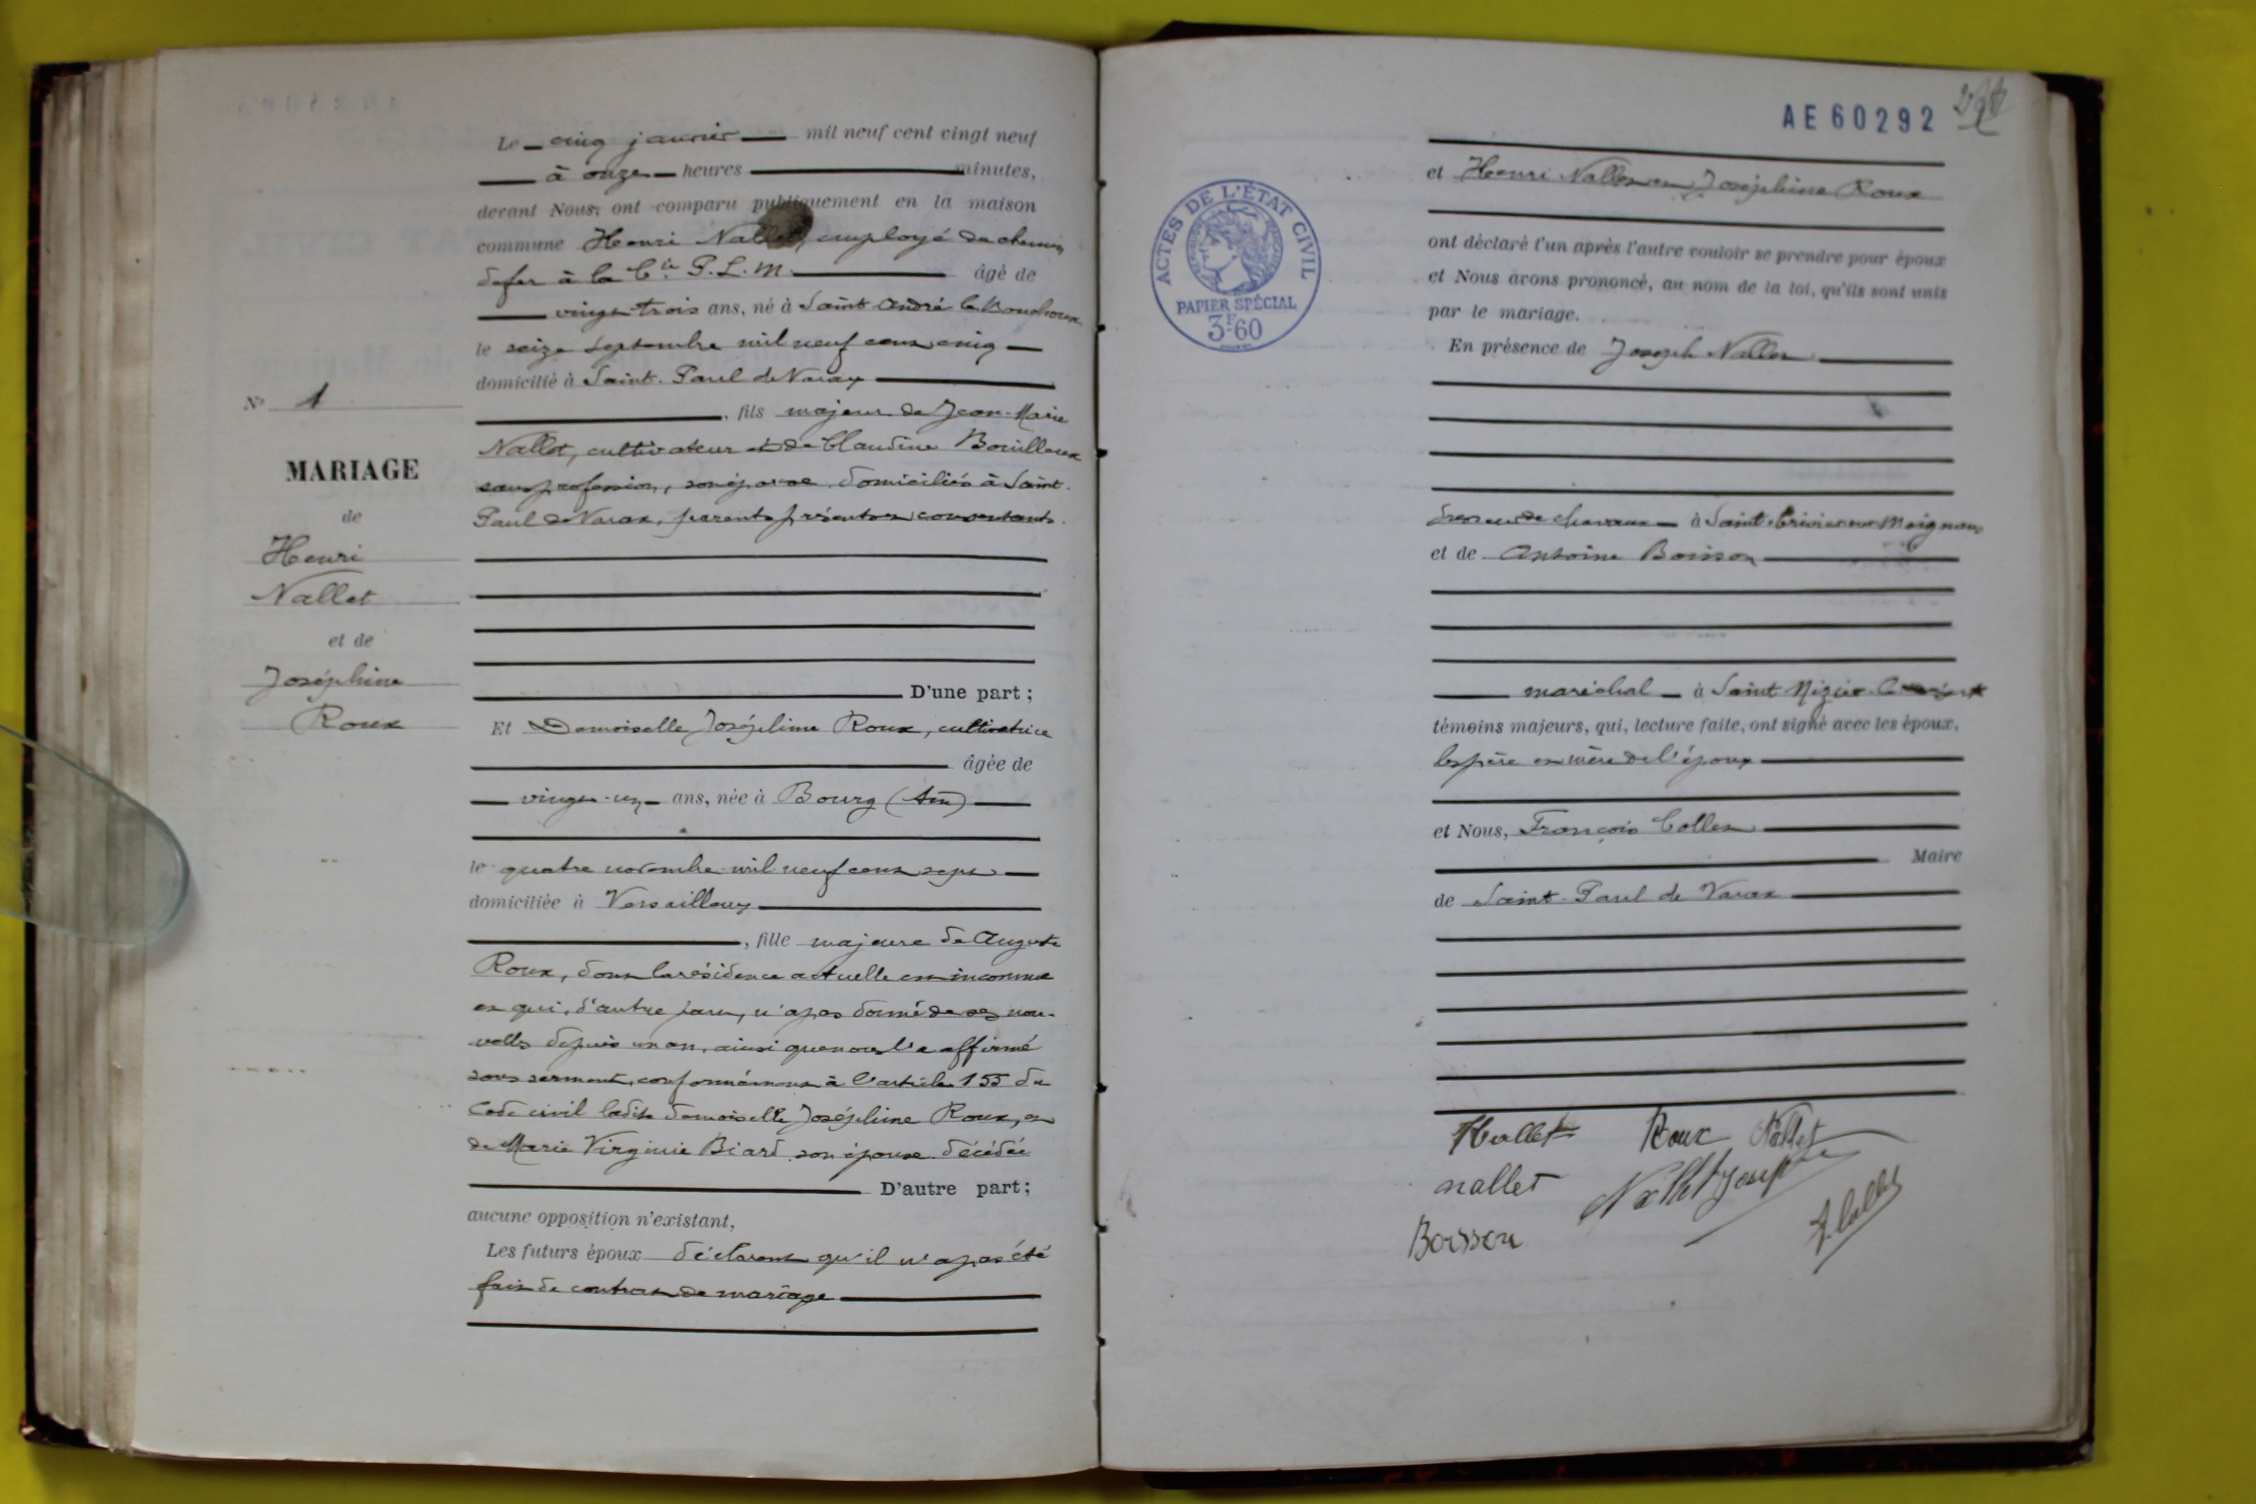 Le cinq janvier mil neuf cent vingt neuf
à onze heures minutes,
devant Nous, ont comparu publiquement en la maison
commune Henri Nallet, employé de chemin
de fer à la Cie P.L.M. âgé de
vingt-trois ans, né à Saint-André le Bouchoux
le seize septembre mil neuf cent cinq
domicilié à Saint-Paul de Varax
, fils majeur de Jean-Marie
Nallet, cultivateur et de Claudine Bouilloux
sans profession, son épouse domiciliés à Saint-
Paul de Varax, parents présents et consentants.
D'une part ;
Et Demoiselle Joséphine Roux, cultivatrice
âgée de
vingt-un ans, née à Bourg (Ain)
le quatre novembre mil neuf cent sept
domiciliée à Versailleux
, fille majeure de Auguste
Roux, dont la résidence actuelle est inconnue
et qui, d'autre part, n'a pas donné de ses nou-
velles depuis un an, ainsi que nous l'a affirmé
sous serment, conformément à l'article 155 du
Code civil ladite demoiselle Joséphine Roux, et
de Marie Virginie Biard son épouse décédée
D'autre part ;
aucune opposition n'existant,
Les futurs époux déclarent qu'il n'a pas été
fait de contrat de mariage
N° 1
MARIAGE
de
Henri
Nallet
et de
Joséphine
Roux
AE 60292
ACTES DE L'ÉTAT CIVIL
PAPIER SPÉCIAL
3F60
et Henri Nallet et Joséphine Roux
ont déclaré l'un après l'autre vouloir se prendre pour époux
et Nous avons prononcé, au nom de la loi, qu'ils sont unis
par le mariage.
En présence de Joseph Nallet
de chevaux à Saint-Trivier sur Moignans
et de Antoine Boisson
maréchal à Saint Nizier
témoins majeurs, qui, lecture faite, ont signé avec les époux,
les père et mère de l'époux
et Nous, François Collet
Maire
de Saint-Paul de Varax
Nallet Roux Nallet
nallet Nallet Joseph
Boisson F. Collet